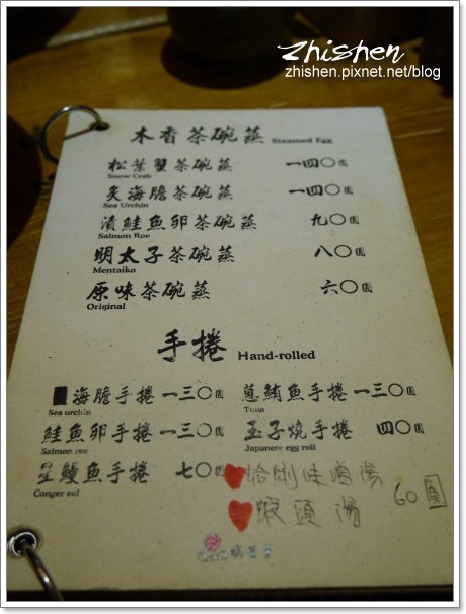 Zhishen
zhishen.pixnet.net/blog
木香茶碗蒸 Steamed Egg
松葉蟹茶碗蒸 一四〇圓
Snow Crab
炙海膽茶碗蒸 一四〇圓
Sea Urchin
漬鮭魚卵茶碗蒸 九〇圓
Salmon Roe
明太子茶碗蒸 八〇圓
Mentaiko
原味茶碗蒸 六〇圓
Original
手捲 Hand-rolled
海膽手捲 一三〇圓
Sea urchin
蔥鮪魚手捲 一三〇圓
Tuna
鮭魚卵手捲 一三〇圓
Salmon roe
玉子燒手捲 四〇圓
Japanese egg roll
星鰻魚手捲 七〇圓
Conger eel
蛤蜊味噌湯
蝦頭湯
60圓